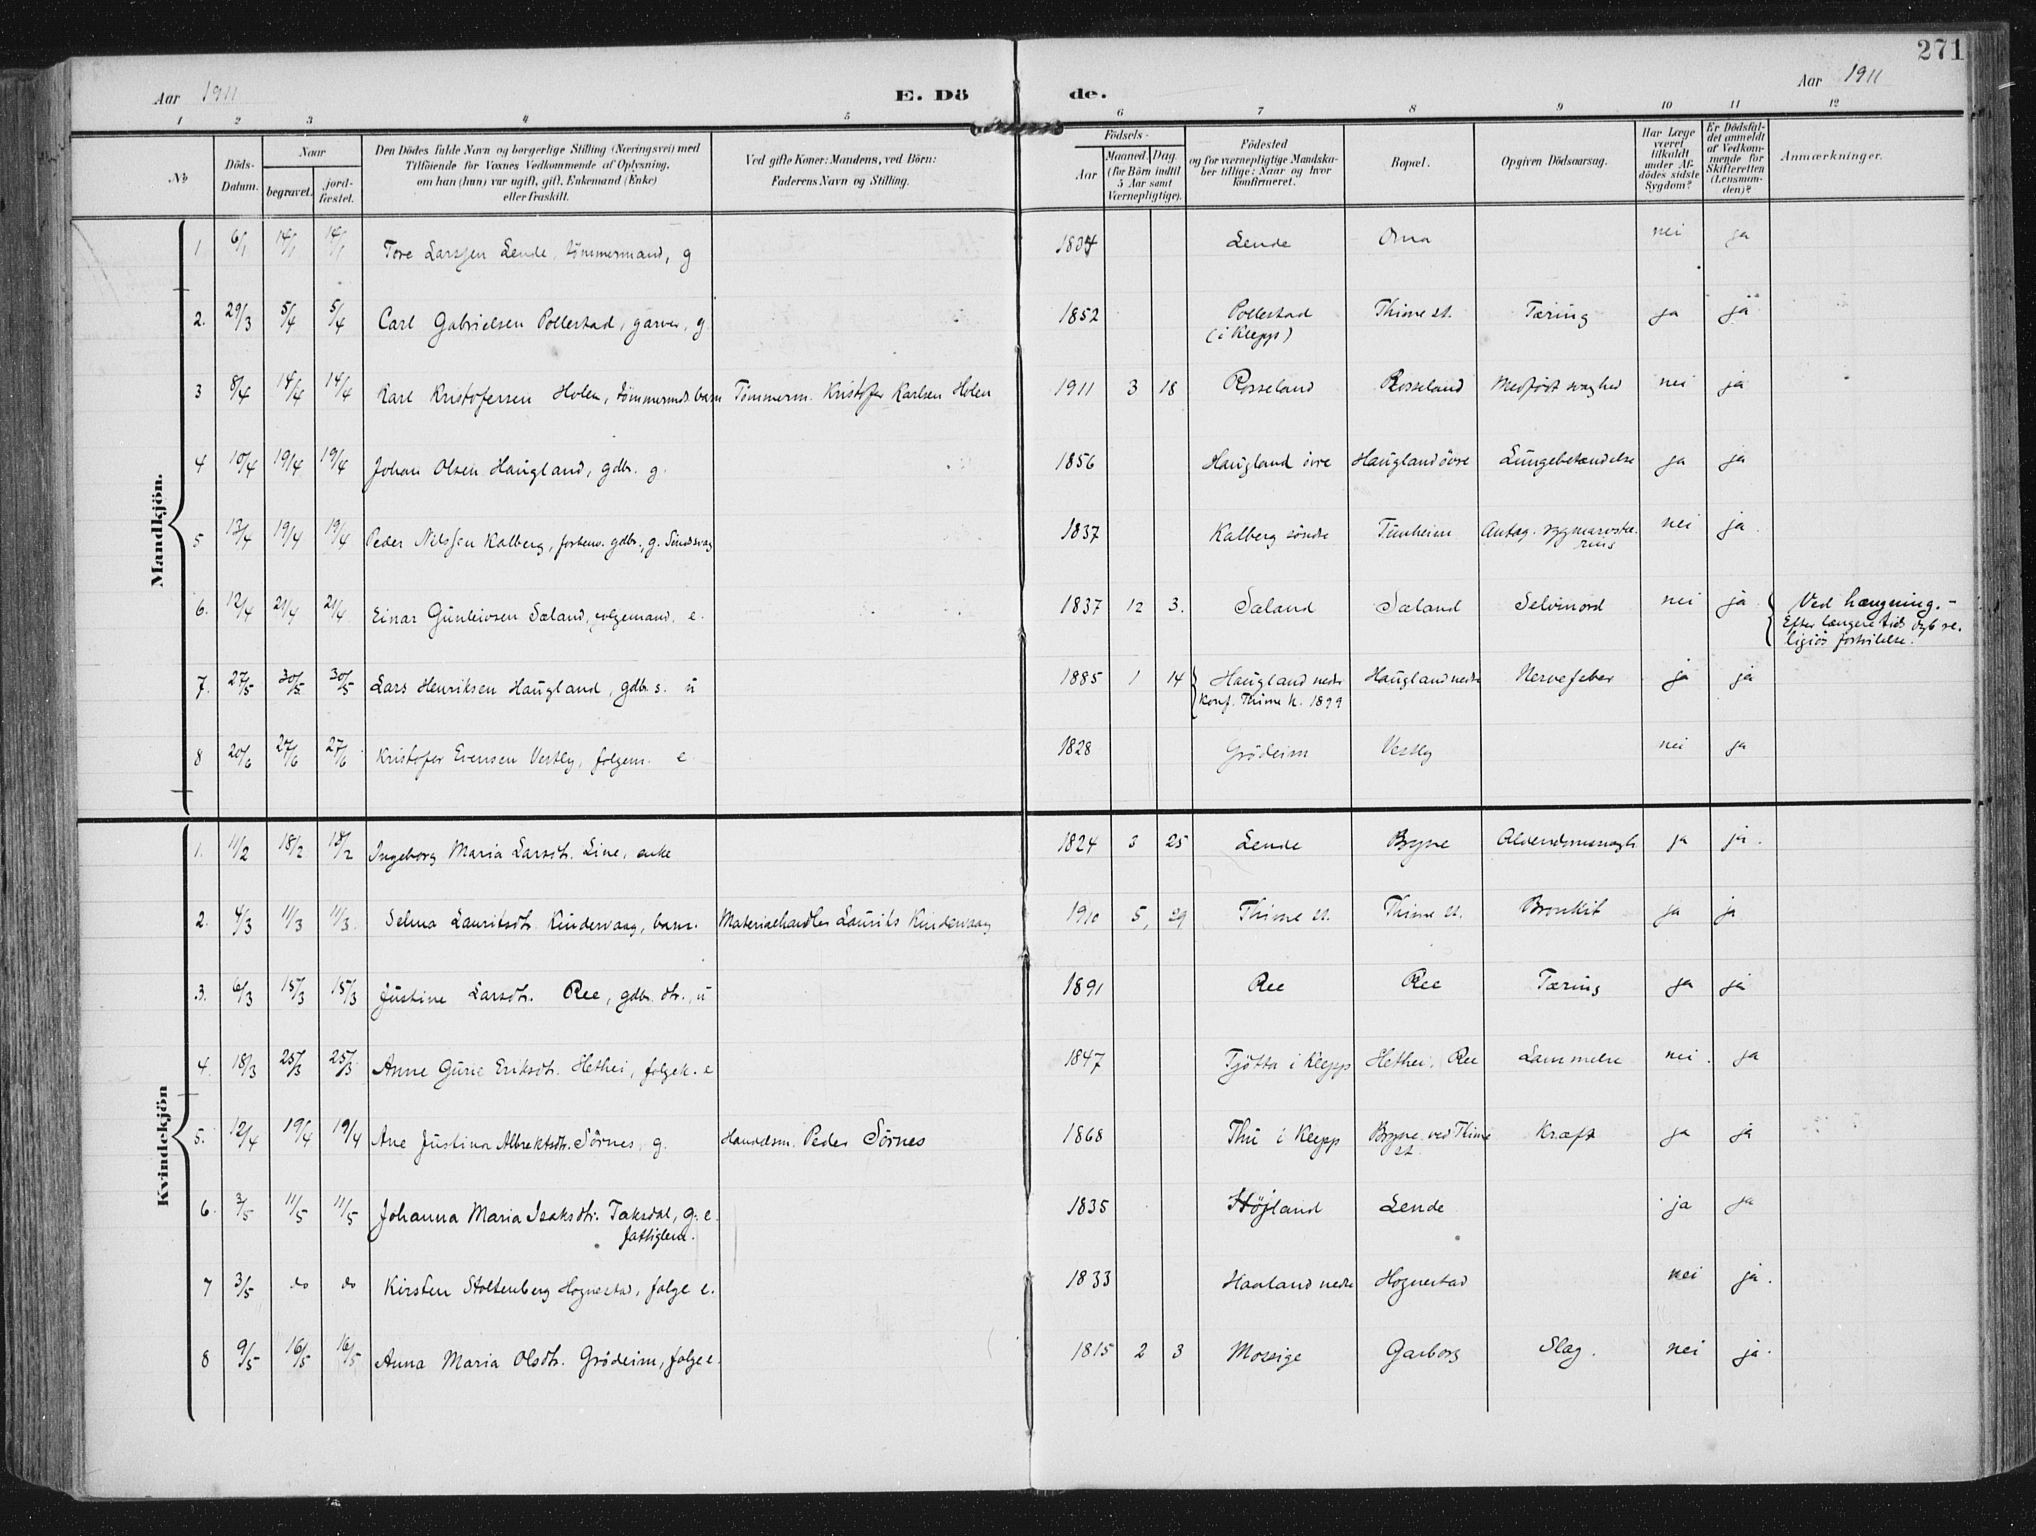 271
Aar 1911 E. Dö de. Aar 1911
1 2 3 4 5 6 7 8 9 10 11 12
No
Döds-Datum.
Naar
begravet.
jord-fæstet.
Den Dödes fulde Navn og borgerlige Stilling (Næringsvei) med
Tilföiende for Voxnes Vedkommende af Oplysning,
om han (hun) var ugift, gift, Enkemand (Enke)
eller fraskilt.
Ved gifte Koner: Mandens, ved Börn:
Faderens Navn og Stilling.
Födsels-
Aar
Maaned. Dag.
(for Börn indtil
5 Aar samt
Værnepligtige).
Födested
og for værnepligtige Mandska-
ber tillige: Naar og hvor
konfirmeret.
Bopæl.
Opgiven Dödsaarsag.
Har Læge
været
tilkaldt
under Af-
dødes sidste
Sygdom?
Er Dödsfal-
det anmeldt
af Vedkom-
mende for
Skifteretten
(Lensman-
den)?
Anmærkninger.
Mandkjön.
1 6/1 14/1 14/1 Tore Larssen Lende, tömmermand, g 1834 Lende Oma nei ja
2. 29/3 5/4 5/4 Carl Gabrielsen Pollestad, garver, g 1852 Pollestad Thime st. Tæring ja ja
(i Klepp)
3 8/4 14/4 14/4 Karl Kristofersen Holen, tömmermds. barn Tömmerm. Kristofer Karlsen Holen 1911 3 18 Rosseland Rosseland Medfödt svaghed nei ja
4 10/4 19/4 19/4 Johan Olsen Haugland, gdbr. g. 1856 Haugland övre Haugland övre Lungebetændelse ja ja
5 13/4 19/4 19/4 Peder Nilssen Kalberg, forhenv. gdbr., g. Sindssvag 1837 Kalberg söndre Tunheim Antag. nei ja.
6. 12/4 21/4 21/4 Einar Gunleivsen Sæland, folgemand, e. 1837 12 3. Sæland Sæland Selvmord nei ja Ved hængning.-
Efter længere tids dyb re-
ligiös fortvilelse.
7. 27/5 30/5 30/5 Lars Henriksen Haugland, gdbr. s. u 1885 1 14 Haugland nedre Haugland nedre Nervefeber ja ja
konf. Thime k. 1899
8 20/6 27/6 27/6 Kristofer Evensen Vestly, folgem. e. 1828 Grödeim Vestly nei ja
Kvindekjön
1. 11/2 18/2 18/2 Ingeborg Maria Larsdtr. Line, enke 1824 3 25 Lende Bryne ja ja.
2. 4/3 11/3 11/3. Selma Lauritsdtr. Kindervaag, barn. Materialhandler Laurits Kindervaag 1910 5, 29 Thime st. Thime st. Bronkit ja ja
3. 6/3 15/3 15/3 Justine Larsdtr. Ree, gdbr. dtr., u 1891 Ree Ree Tæring ja ja
4. 18/3 25/3 25/3 Anne Gurie Eriksdtr. Hethei, folgek. e 1847 Tjötta i Klepp Hethei, Ree Lammelse nei. ja
5. 12/4 19/4 19/4 Ane Justina Albrektsdtr. Sörnes, g. Handelsm. Peder Sörnes 1868 Thu i Klepp Bryne ved Thime Kræft ja ja
st.
6. 3/5 11/5 11/5 Johanna Maria Isaksdtr. Taksdal, g. e. 1835 Höjland Lende ja ja
fattiglem.
7 3/5 do do Kirsten Stoltenberg Hognestad, folge e. 1833 Haaland nedre Hognestad nei ja.
8 9/5 16/5 16/5 Anna Maria Olsdtr. Grödeim, folge e. 1815 2 3 Mossige Garborg Slag. nei ja.